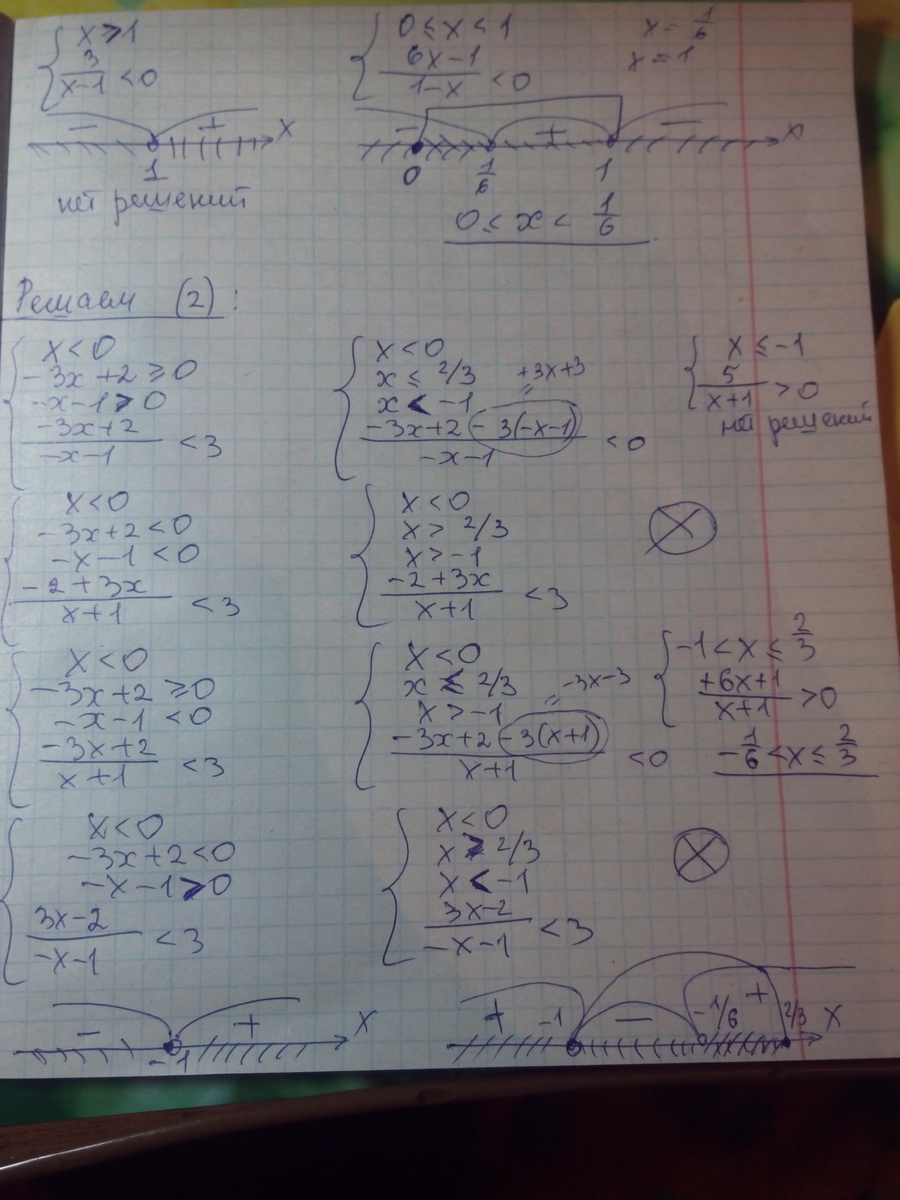 { x ≥ 1
3/(x-1) < 0
- + x
1
нет решений
{ 0 ≤ x < 1
(6x-1)/(1-x) < 0
x = 1/6
x = 1
- + - x
0 1/6 1
0 ≤ x < 1/6
Решаем (2):
{ x < 0
-3x+2 ≥ 0
-x-1 > 0
(-3x+2)/(-x-1) < 3
{ x < 0
x ≤ 2/3
x < -1
+3x+3
=
(-3x+2-3(-x-1))/(-x-1) < 0
{ x ≤ -1
5/(x+1) > 0
нет решений
{ x < 0
-3x+2 < 0
-x-1 < 0
(-2+3x)/(x+1) < 3
{ x < 0
x > 2/3
x > -1
(-2+3x)/(x+1) < 3
{ x < 0
-3x+2 ≥ 0
-x-1 < 0
(-3x+2)/(x+1) < 3
{ x < 0
x ≤ 2/3
x > -1
= -3x-3
(-3x+2-3(x+1))/(x+1) < 0
{ -1 < x ≤ 2/3
(+6x+1)/(x+1) > 0
-1/6 < x ≤ 2/3
{ x < 0
-3x+2 < 0
-x-1 > 0
(3x-2)/(-x-1) < 3
{ x < 0
x > 2/3
x < -1
(3x-2)/(-x-1) < 3
- + x
-1
+ -1 - -1/6 + 2/3 x